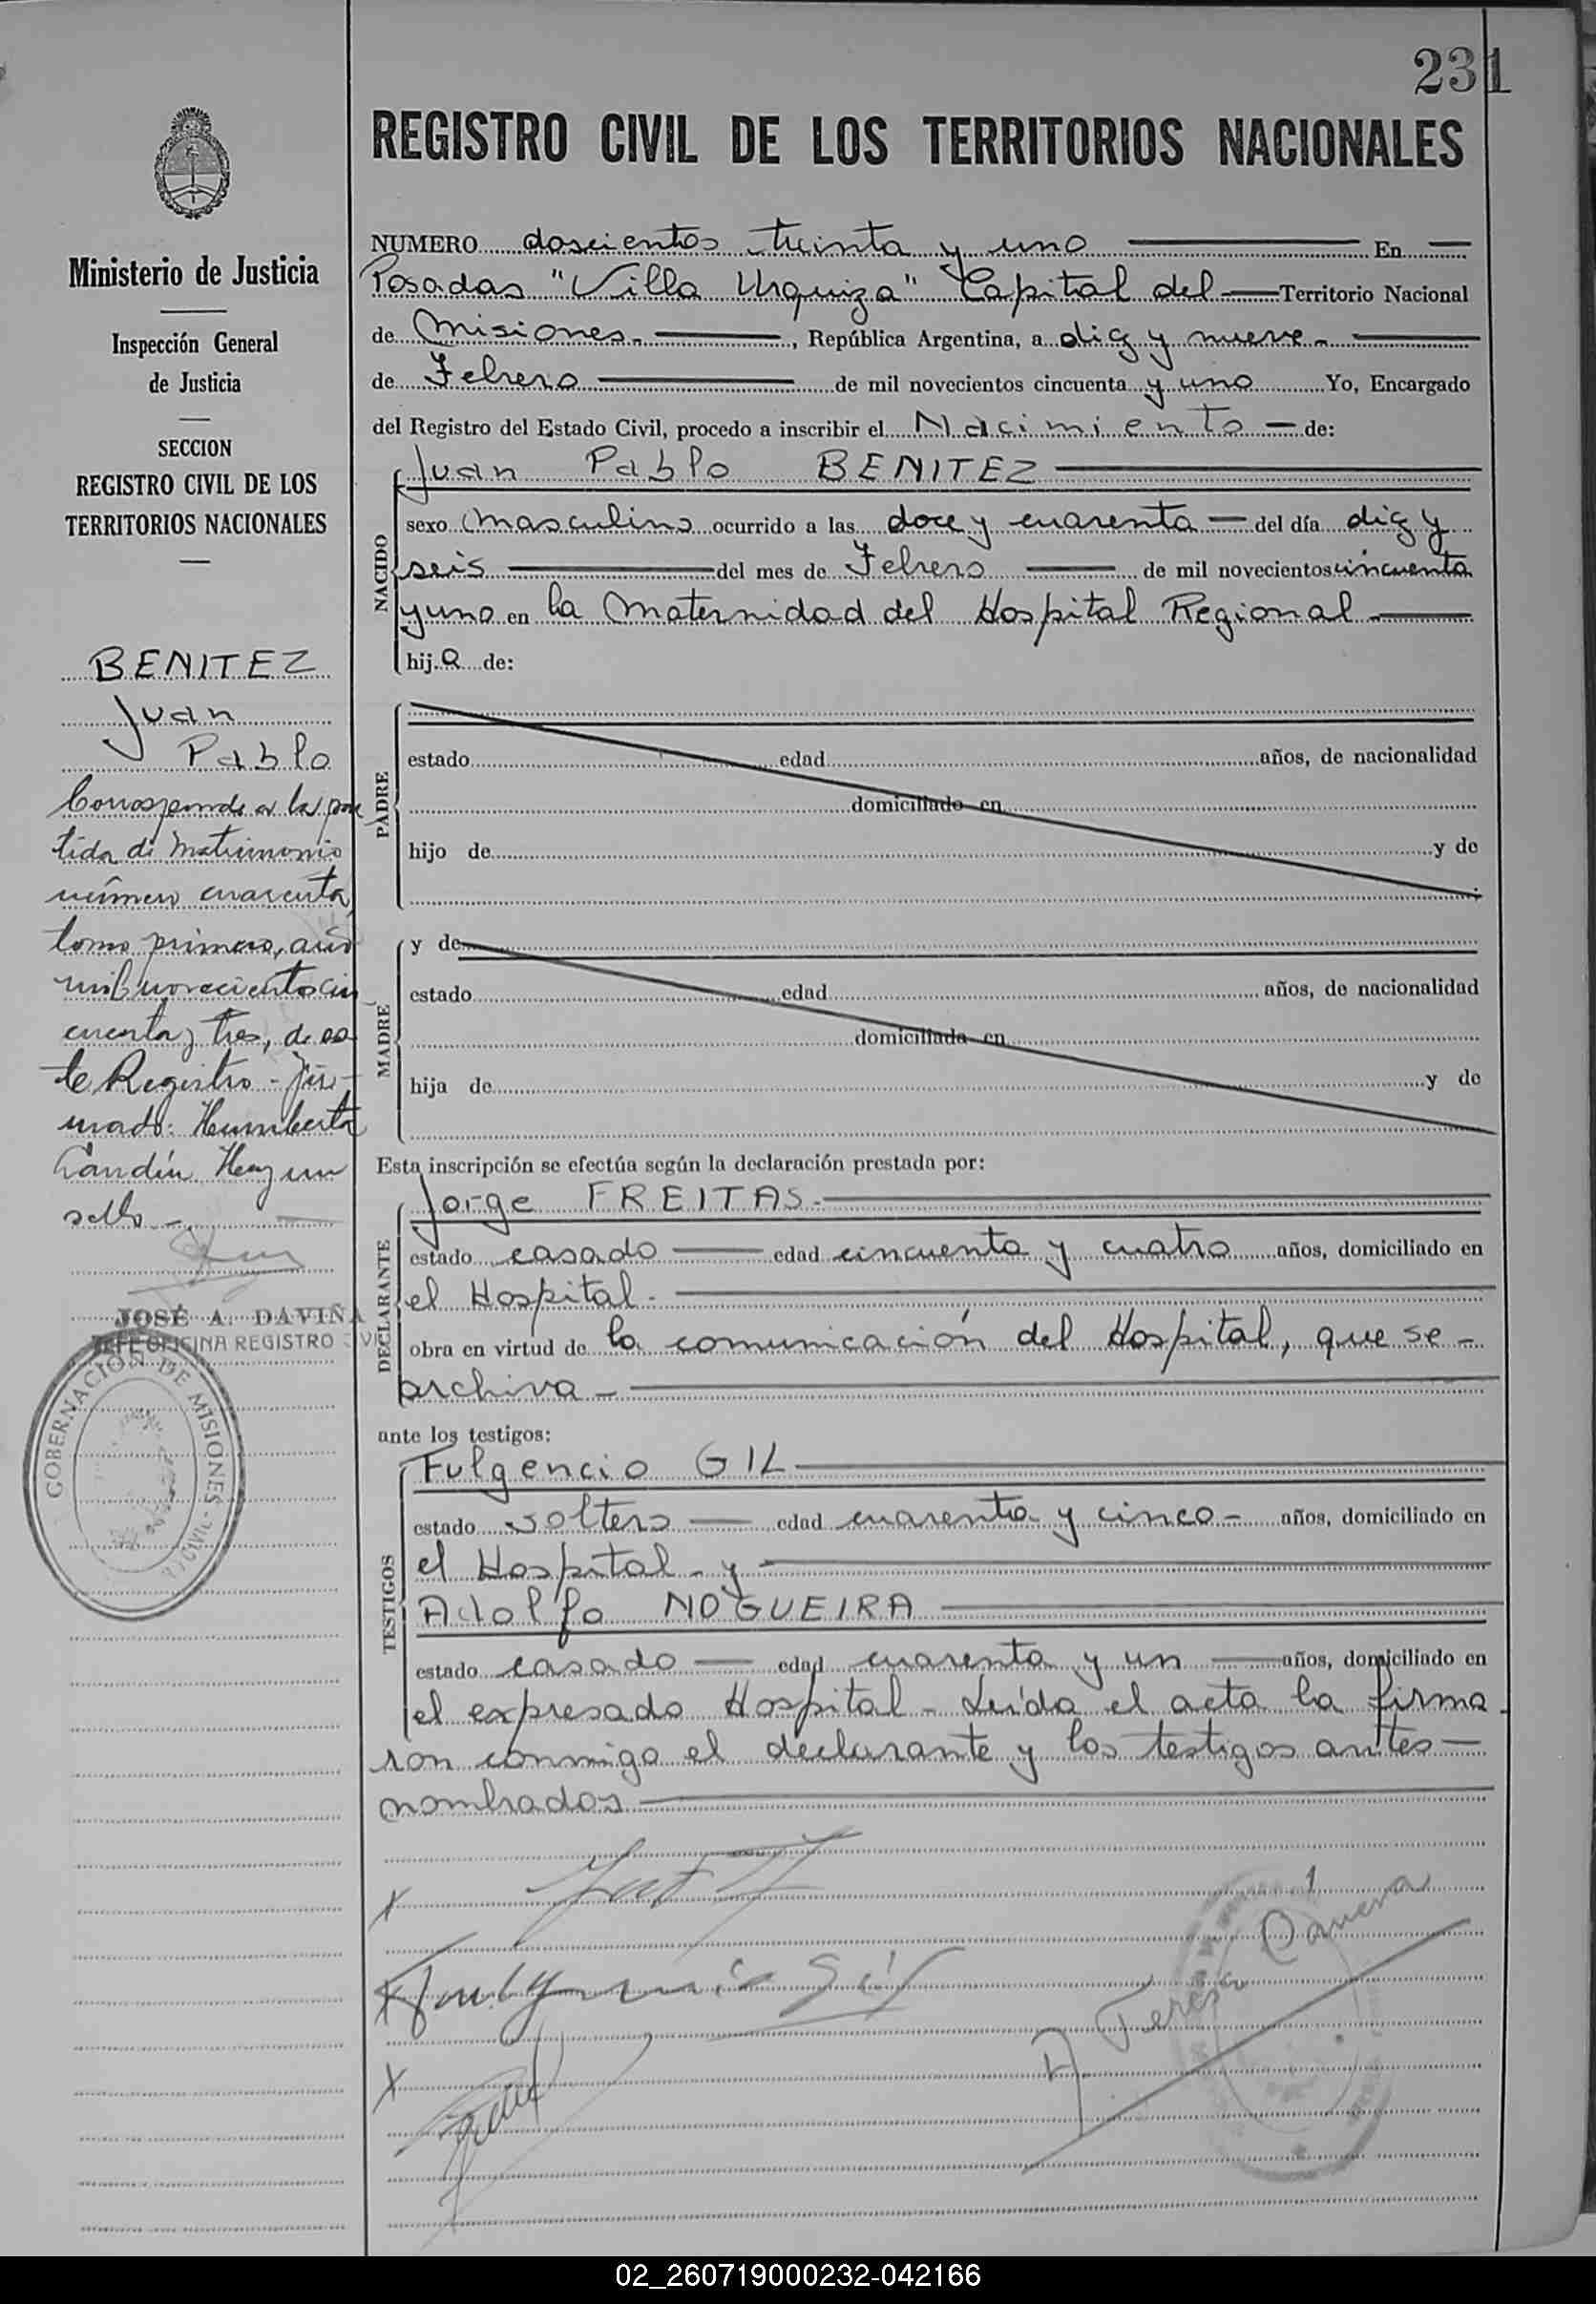 231
REGISTRO CIVIL DE LOS TERRITORIOS NACIONALES
Ministerio de Justicia
Inspección General
de Justicia
SECCION
REGISTRO CIVIL DE LOS
TERRITORIOS NACIONALES
BENITEZ
Juan
Pablo
Corresponde a la par
tida de Matrimonio
número cuarenta,
tomo primero, año
mil novecientos cin
cuenta y tres, de es
te Registro - Fir-
mado: Humberto
Candín Hay un
sello -
JOSÉ A. DAVIÑA
JEFE OFICINA REGISTRO CIVIL
GOBERNACION DE MISIONES
NUMERO doscientos treinta y uno En
Posadas "Villa Urquiza" Capital del Territorio Nacional
de Misiones. , República Argentina, a diez y nueve -
de Febrero de mil novecientos cincuenta y uno Yo, Encargado
del Registro del Estado Civil, procedo a inscribir el Nacimiento de:
NACIDO
Juan Pablo BENITEZ
sexo masculino ocurrido a las doce y cuarenta del día diez y
seis del mes de Febrero de mil novecientos cincuenta
y uno en la Maternidad del Hospital Regional
hij o de:
PADRE
estado edad años, de nacionalidad
domiciliado en
hijo de y de
MADRE
y de
estado edad años, de nacionalidad
domiciliada en
hija de y de
Esta inscripción se efectúa según la declaración prestada por:
DECLARANTE
Jorge FREITAS.
estado casado edad cincuenta y cuatro años, domiciliado en
el Hospital.
obra en virtud de la comunicación del Hospital, que se -
archiva -
ante los testigos:
TESTIGOS
Fulgencio GIL
estado soltero edad cuarenta y cinco - años, domiciliado en
el Hospital - y
Adolfo NOGUEIRA
estado casado edad cuarenta y un años, domiciliado en
el expresado Hospital - Leída el acta la firma
ron conmigo el declarante y los testigos antes -
nombrados
x
x Fulgencio Gil
x
A. Teresa
02_260719000232-042166